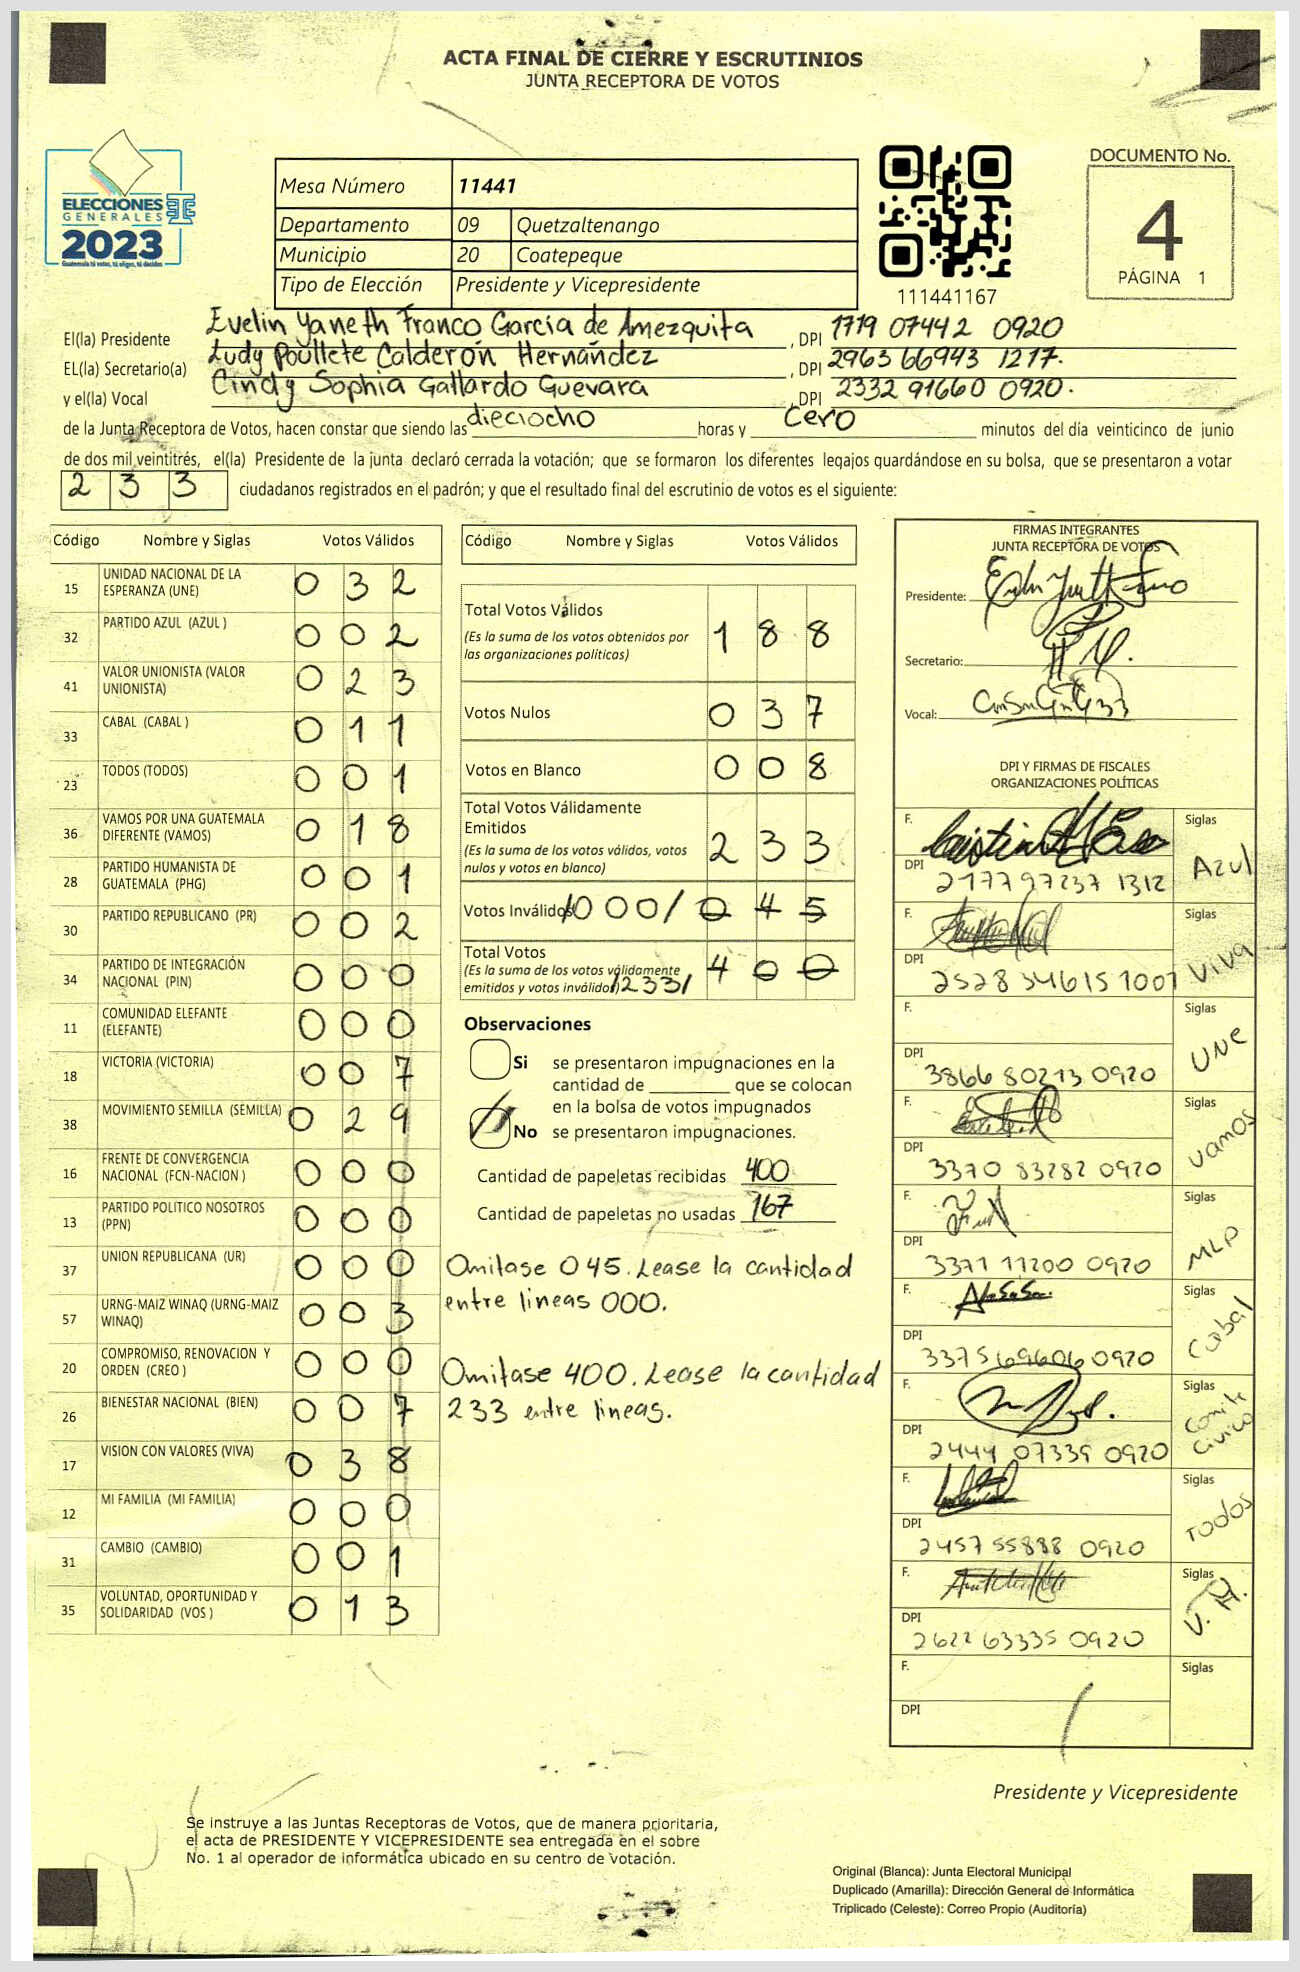 ACTA FINAL DE CIERRE Y ESCRUTINIOS
JUNTA RECEPTORA DE VOTOS
ELECCIONES
GENERALES
2023
Guatemala tú votas, tú eliges, tú decides
Mesa Número 11441
Departamento 09 Quetzaltenango
Municipio 20 Coatepeque
Tipo de Elección Presidente y Vicepresidente
111441167
DOCUMENTO No.
4
PÁGINA 1
El(la) Presidente Evelin Yaneth Franco García de Amezquita, DPI 1719 07442 0920
EL(la) Secretario(a) Ludy Poullete Calderón Hernández, DPI 2963 66943 1217.
y el(la) Vocal Cindy Sophia Gallardo Guevara, DPI 2332 91660 0920.
de la Junta Receptora de Votos, hacen constar que siendo las dieciocho horas y cero minutos del día veinticinco de junio
de dos mil veintitrés, el(la) Presidente de la junta declaró cerrada la votación; que se formaron los diferentes legajos guardándose en su bolsa, que se presentaron a votar
2 3 3 ciudadanos registrados en el padrón; y que el resultado final del escrutinio de votos es el siguiente:
Código Nombre y Siglas Votos Válidos
15 UNIDAD NACIONAL DE LA ESPERANZA (UNE) 0 3 2
32 PARTIDO AZUL (AZUL ) 0 0 2
41 VALOR UNIONISTA (VALOR UNIONISTA) 0 2 3
33 CABAL (CABAL ) 0 1 1
23 TODOS (TODOS) 0 0 1
36 VAMOS POR UNA GUATEMALA DIFERENTE (VAMOS) 0 1 8
28 PARTIDO HUMANISTA DE GUATEMALA (PHG) 0 0 1
30 PARTIDO REPUBLICANO (PR) 0 0 2
34 PARTIDO DE INTEGRACIÓN NACIONAL (PIN) 0 0 0
11 COMUNIDAD ELEFANTE (ELEFANTE) 0 0 0
18 VICTORIA (VICTORIA) 0 0 7
38 MOVIMIENTO SEMILLA (SEMILLA) 0 2 9
16 FRENTE DE CONVERGENCIA NACIONAL (FCN-NACION ) 0 0 0
13 PARTIDO POLITICO NOSOTROS (PPN) 0 0 0
37 UNION REPUBLICANA (UR) 0 0 0
57 URNG-MAIZ WINAQ (URNG-MAIZ WINAQ) 0 0 3
20 COMPROMISO, RENOVACION Y ORDEN (CREO ) 0 0 0
26 BIENESTAR NACIONAL (BIEN) 0 0 7
17 VISION CON VALORES (VIVA) 0 3 8
12 MI FAMILIA (MI FAMILIA) 0 0 0
31 CAMBIO (CAMBIO) 0 0 1
35 VOLUNTAD, OPORTUNIDAD Y SOLIDARIDAD (VOS ) 0 1 3
Código Nombre y Siglas Votos Válidos
Total Votos Válidos 1 8 8
(Es la suma de los votos obtenidos por
las organizaciones politicas)
Votos Nulos 0 3 7
Votos en Blanco 0 0 8
Total Votos Válidamente
Emitidos 2 3 3
(Es la suma de los votos válidos, votos
nulos y votos en blanco)
Votos Inválidos /000/ 0 4 5
Total Votos 4 0 0
(Es la suma de los votos válidamente
emitidos y votos inválidos) /233/
Observaciones
Si se presentaron impugnaciones en la
cantidad de ________ que se colocan
en la bolsa de votos impugnados
No se presentaron impugnaciones.
Cantidad de papeletas recibidas 400
Cantidad de papeletas no usadas 167
Omitase 045. Lease la cantidad
entre lineas 000.
Omitase 400. Lease la cantidad
233 entre lineas.
FIRMAS INTEGRANTES
JUNTA RECEPTORA DE VOTOS
Presidente:
Secretario:
Vocal:
DPI Y FIRMAS DE FISCALES
ORGANIZACIONES POLÍTICAS
F. Siglas
DPI 2177 97237 1312 Azul
F. Siglas
DPI 2528 34615 1007 Viva
F. Siglas
DPI 3866 80213 0920 UNE
F. Siglas
DPI 3370 83282 0920 Vamos
F. Siglas
DPI 3371 11200 0920 MLP
F. Siglas
DPI 3375 69606 0920 Cabal
F. Siglas
DPI 2444 07339 0920 Comite Civico
F. Siglas
DPI 2457 55888 0920 TODOS
F. Siglas
DPI 2622 63335 0920
F. Siglas
DPI
Presidente y Vicepresidente
Se instruye a las Juntas Receptoras de Votos, que de manera prioritaria,
el acta de PRESIDENTE Y VICEPRESIDENTE sea entregada en el sobre
No. 1 al operador de informática ubicado en su centro de votación.
Original (Blanca): Junta Electoral Municipal
Duplicado (Amarilla): Dirección General de Informática
Triplicado (Celeste): Correo Propio (Auditoría)